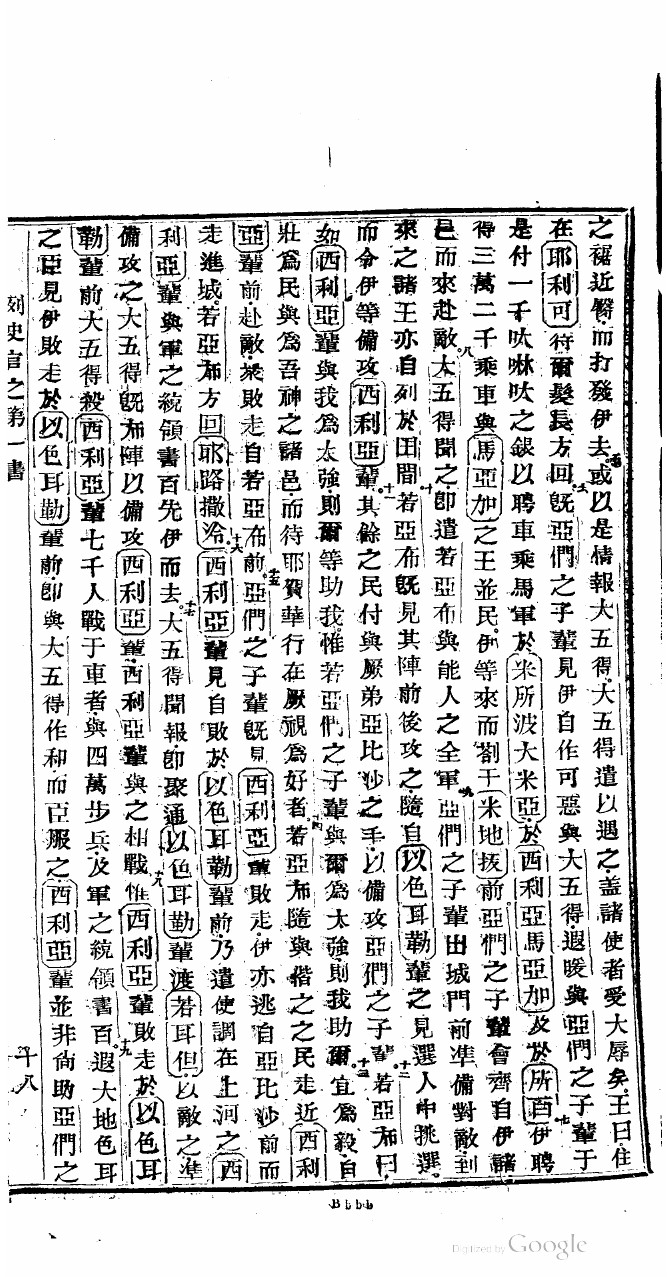 之裾近臀而打發伊去或以是情報大五得大五得遣以遇之蓋諸使者愛大辱矣王曰住
在耶利可待爾髮長方回既亞們之子輩見伊自作可惡與大五得遐暖與亞們之子輩于
是付一千呔啉呔之銀以聘車乘馬軍於米所波大米亞於西利亞馬亞加及於所百伊聘
得三萬二千乘車與馬亞加之王並民伊等來而劄于米地抜前亞們之子輩會齊自伊諸
邑而來赴敵大五得聞之卽遣若亞布與能人之全軍亞們之子輩出城門前準備對敵到
來之諸王亦自列於田間若亞布既見其陣前後攻之隨自以色耳勒輩之見選人中挑選
而令伊等備攻西利亞輩其餘之民付與厥弟亞比沙之手以備攻亞們之子輩若亞布曰
如西利亞輩與我爲太強則爾等助我惟若亞們之子輩與爾爲太強則我助爾宜爲毅自
壯爲民與爲吾神之諸邑而待耶賀華行在厥視爲好者若亞布隨與偕之之民走近西利
亞輩前赴敵衆敗走自若亞布前亞們之子輩既見西利亞輩敗走伊亦逃自亞比沙前而
走進城若亞布方回耶路撒冷西利亞輩見自敗於以色耳勒輩前乃遣使調在上河之西
利亞輩與軍之統領書百先伊而去大五得聞報卽聚通以色耳勒輩渡若耳但以敵之準
備攻之大五得既布陣以備攻西利亞輩西利亞輩與之相戰惟西利亞輩敗走於以色耳
勒輩前大五得殺西利亞輩七千人戰于車者與四萬步兵及軍之統領書百遐大地色耳
之臣見伊敗走於以色耳勒輩前卽與大五得作和而臣服之西利亞輩並非尙助亞們之
史官之第一書
十八
Bbbb
Digitized by Google